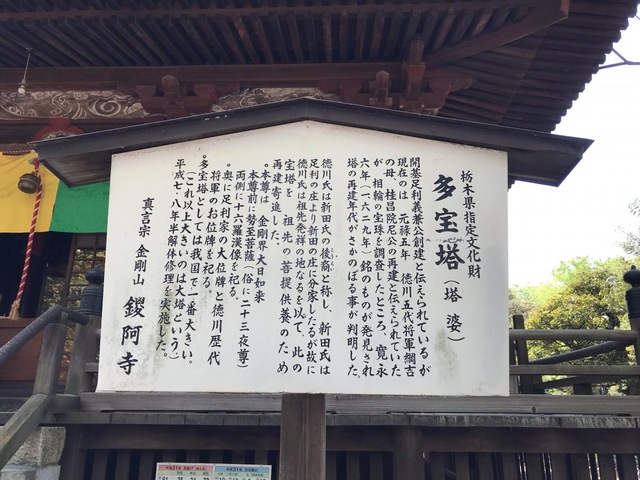 栃木県指定文化財
多宝塔（塔婆）
開基足利義兼公創建と伝えられているが
現在のは 元禄五年 徳川五代将軍綱吉
の母 桂昌院尼公の再建と伝えられていた
が、相輪の宝珠を調査したところ、寛永
六年（一六二九年）銘のものが発見され
塔の再建年代がさかのぼる事が判明した
徳川氏は新田氏の後裔と称し、新田氏は
足利の庄より新田の庄に分家したるが故に
徳川氏は祖先発祥の地なるを以て、此の
宝塔を 祖先の菩提供養のため
再建寄進した。
。本尊は 金剛界大日如来
本尊前に勢至菩薩（俗に二十三夜尊）
両側に十六羅漢像を祀る。
。奥に足利家の大位牌と徳川歴代
将軍のお位牌を祀る。
。多宝塔としては我国で一番大きい。
（これ以上大きいのは大塔という）
平成七・八年半解体修理を実施した。
真言宗 金剛山 鑁阿寺
平成21年
平成21年